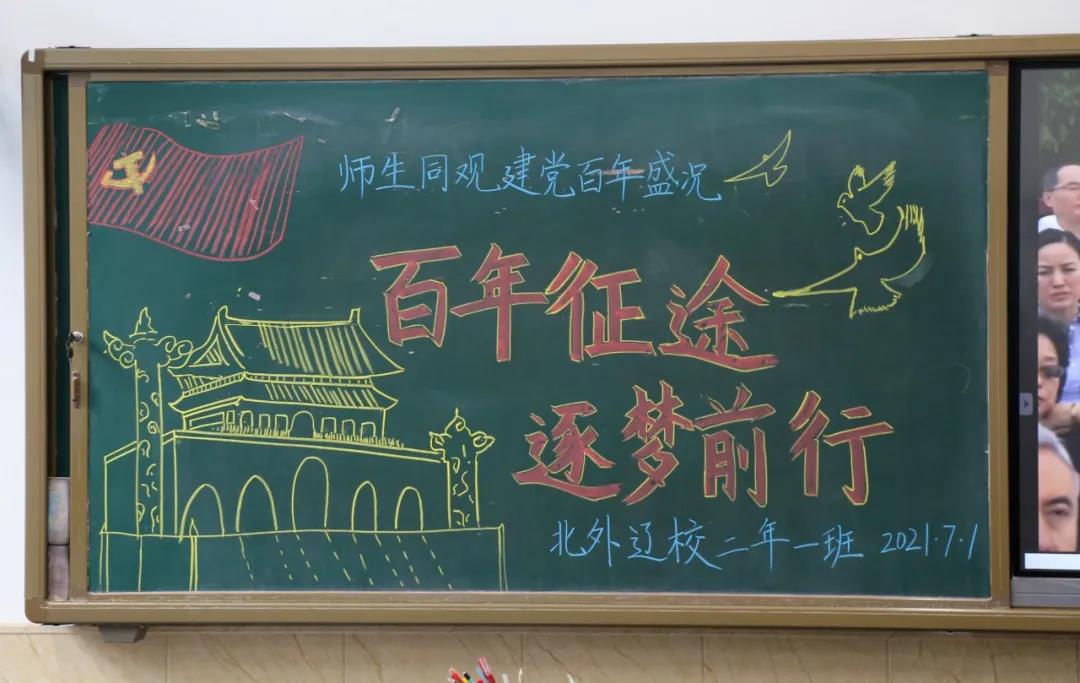 师生同观建党百年盛况
百年征途
逐梦前行
北外辽校二年一班 2021.7.1